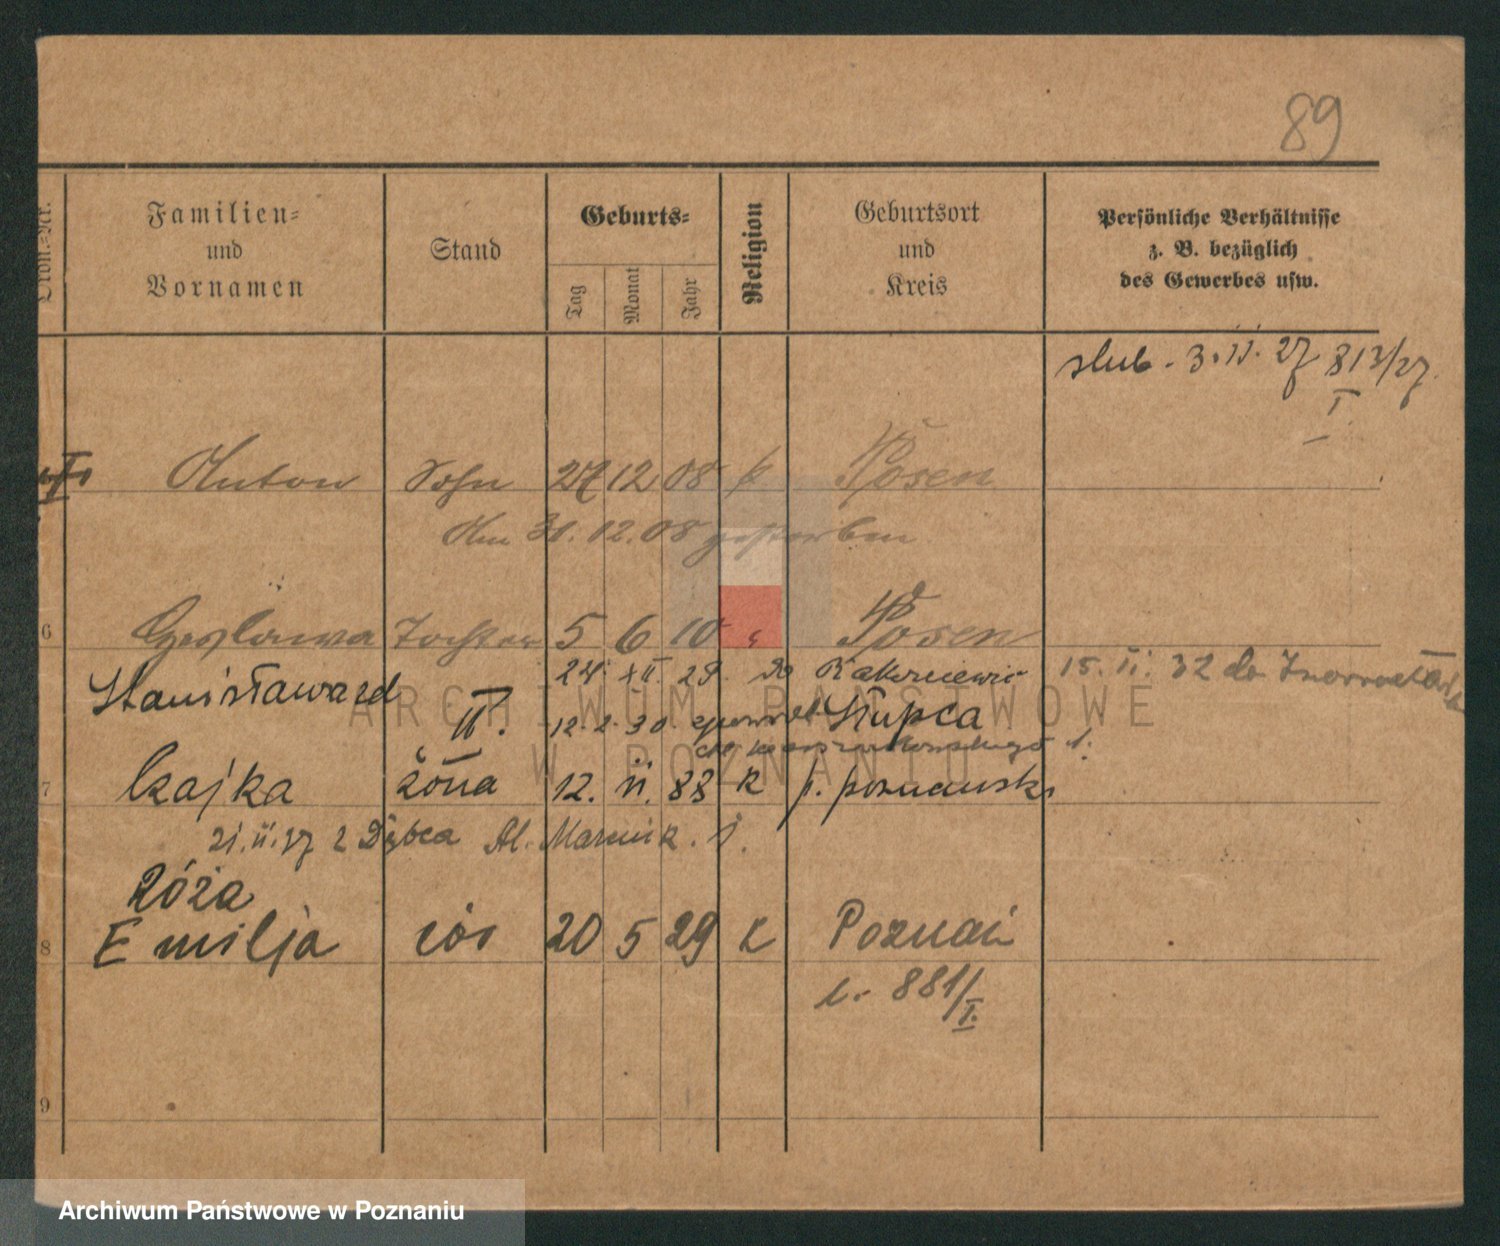 89
Familien=
und
Vornamen
Stand
Geburts=
Tag
Monat
Jahr
Religion
Geburtsort
und
Kreis
Persönliche Verhältnisse
z. B. bezüglich
des Gewerbes usw.
slub. 3. II. 27 813/27.
I
Anton Sohn 27 12 08 k Posen
Am 31. 12. 08 gestorben
6 Czeslawa Tochter 5 6 10 Posen
24. XII. 29. do 15. II. 32 do
Stanisława zd II. 12. 2. 30. Słupca
7 Czajka żona 12. II. 88 k p. poznański
21. II. 27 z Dębca
Róża
8 Emilja cór 20 5 29 k Poznań
l. 881/I.
9
ARCHIWUM PAŃSTWOWE
W POZNANIU
Archiwum Państwowe w Poznaniu